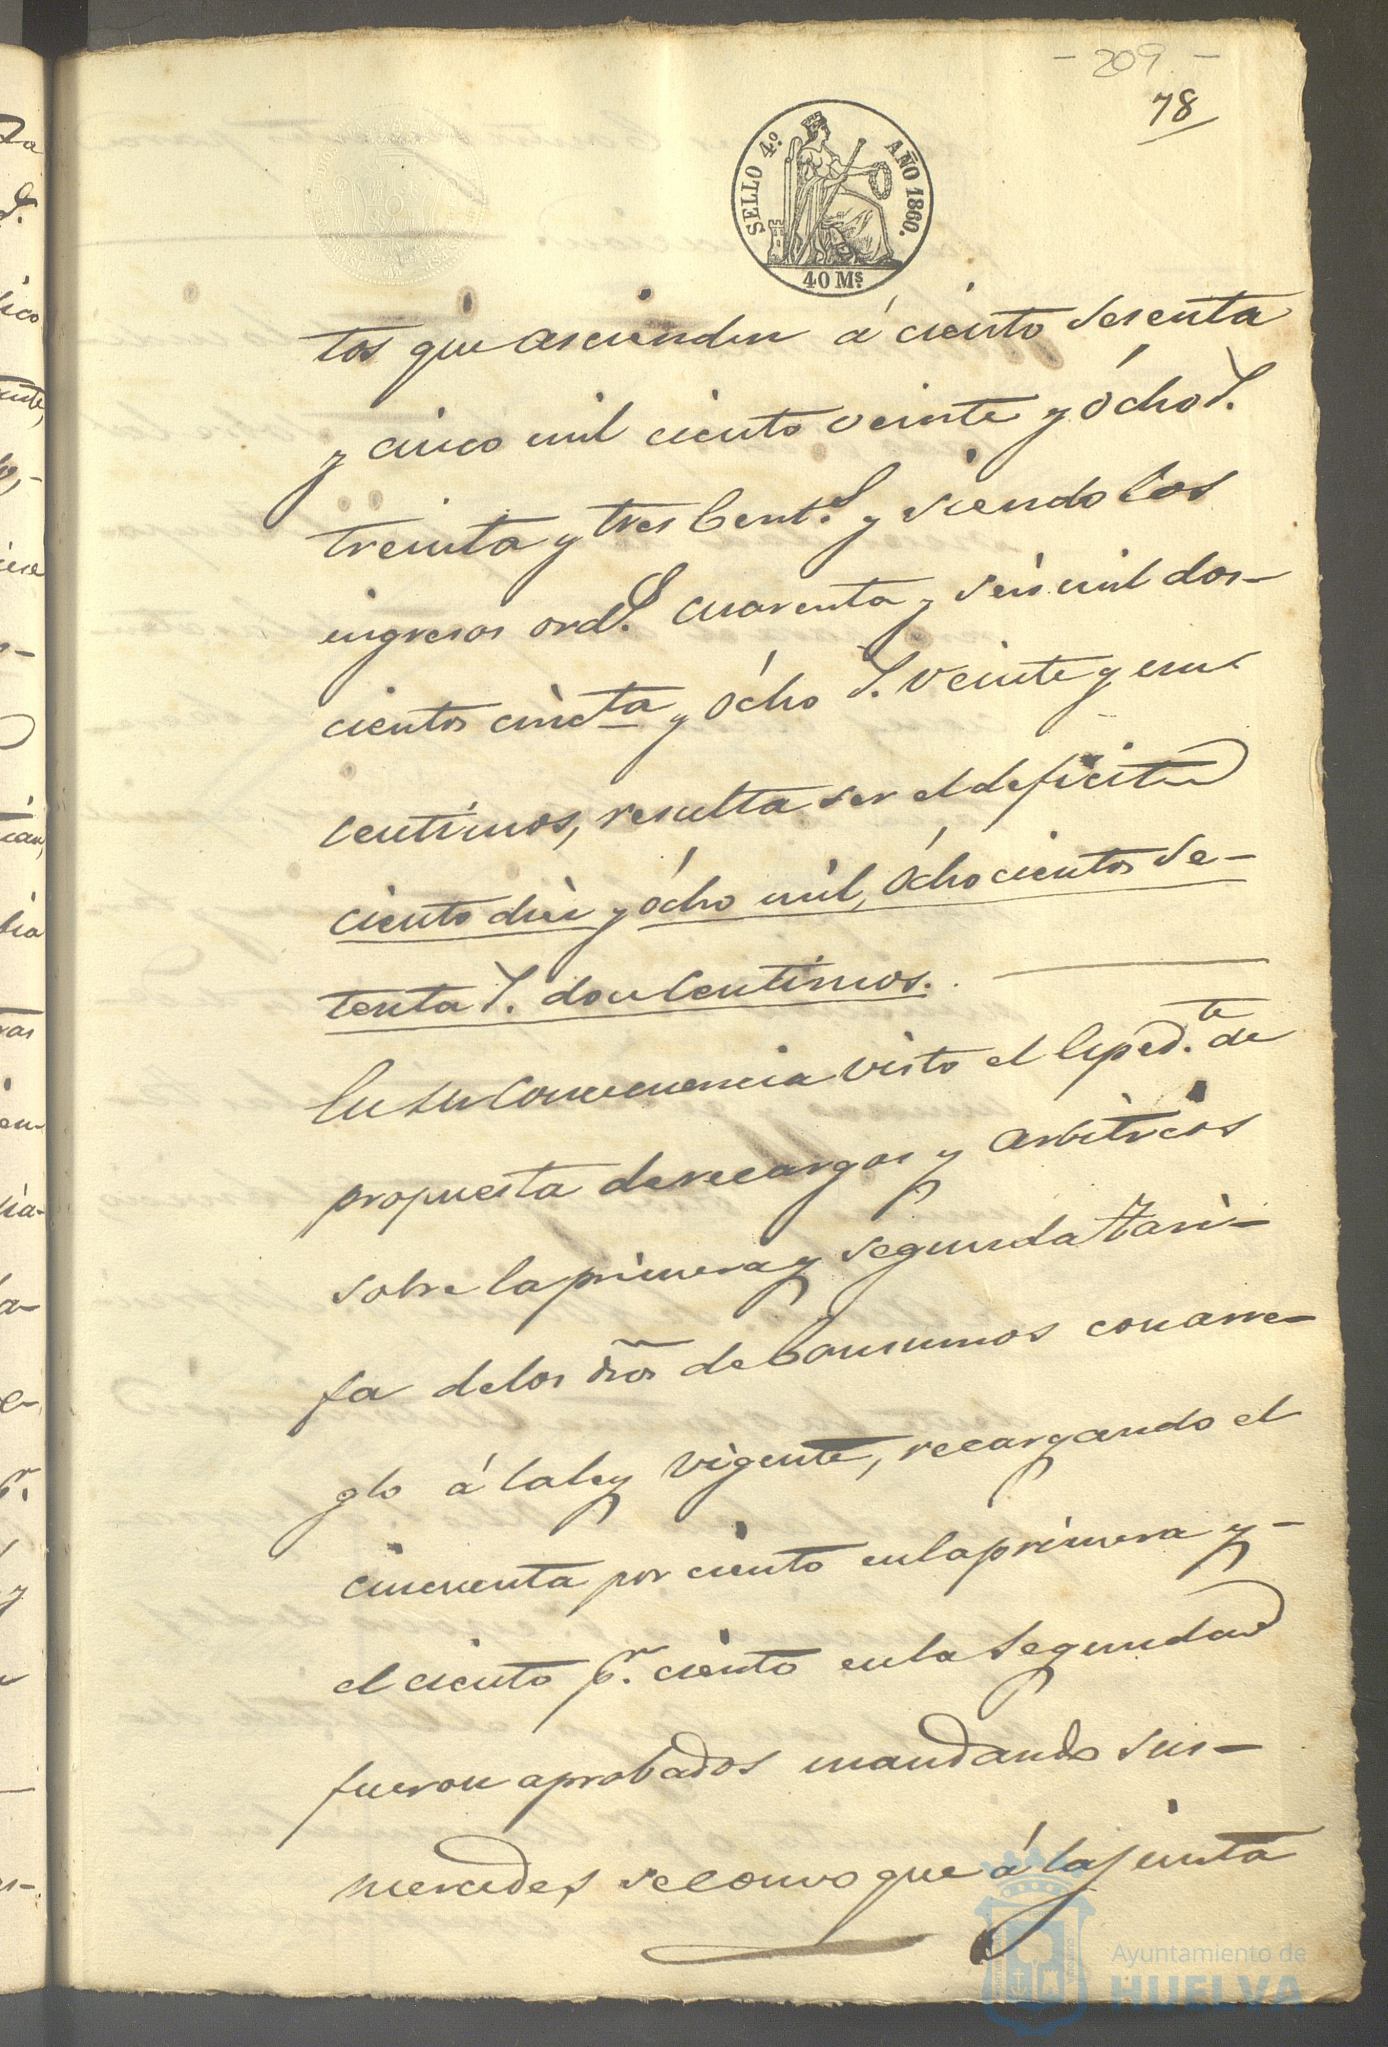 - 209 -
78
SELLO 4.º AÑO 1860.
40 Ms.
tos que ascienden á ciento sesenta
y cinco mil ciento veinte y ócho r.
treinta y tres Cent.s y siendo los
ingresos ord.s cuarenta y seis mil dos-
cientos cincta y ócho r. veinte y un
centimos, resulta ser el deficit
ciento diez y ócho mil, ócho cientos se-
tenta r. doce Centimos.
En su Consecuencia visto el Esped.te de
propuesta de recargos y arbitrios
sobre la primera y segunda tari-
fa de los dros de Consumos con arre-
glo á la ley vigente, recargando el
cincuenta por ciento en la primera y-
el ciento p.r ciento en la segunda
fueron aprobados mandando sus-
mercedes, se convoque á la junta
Ayuntamiento de
HUELVA